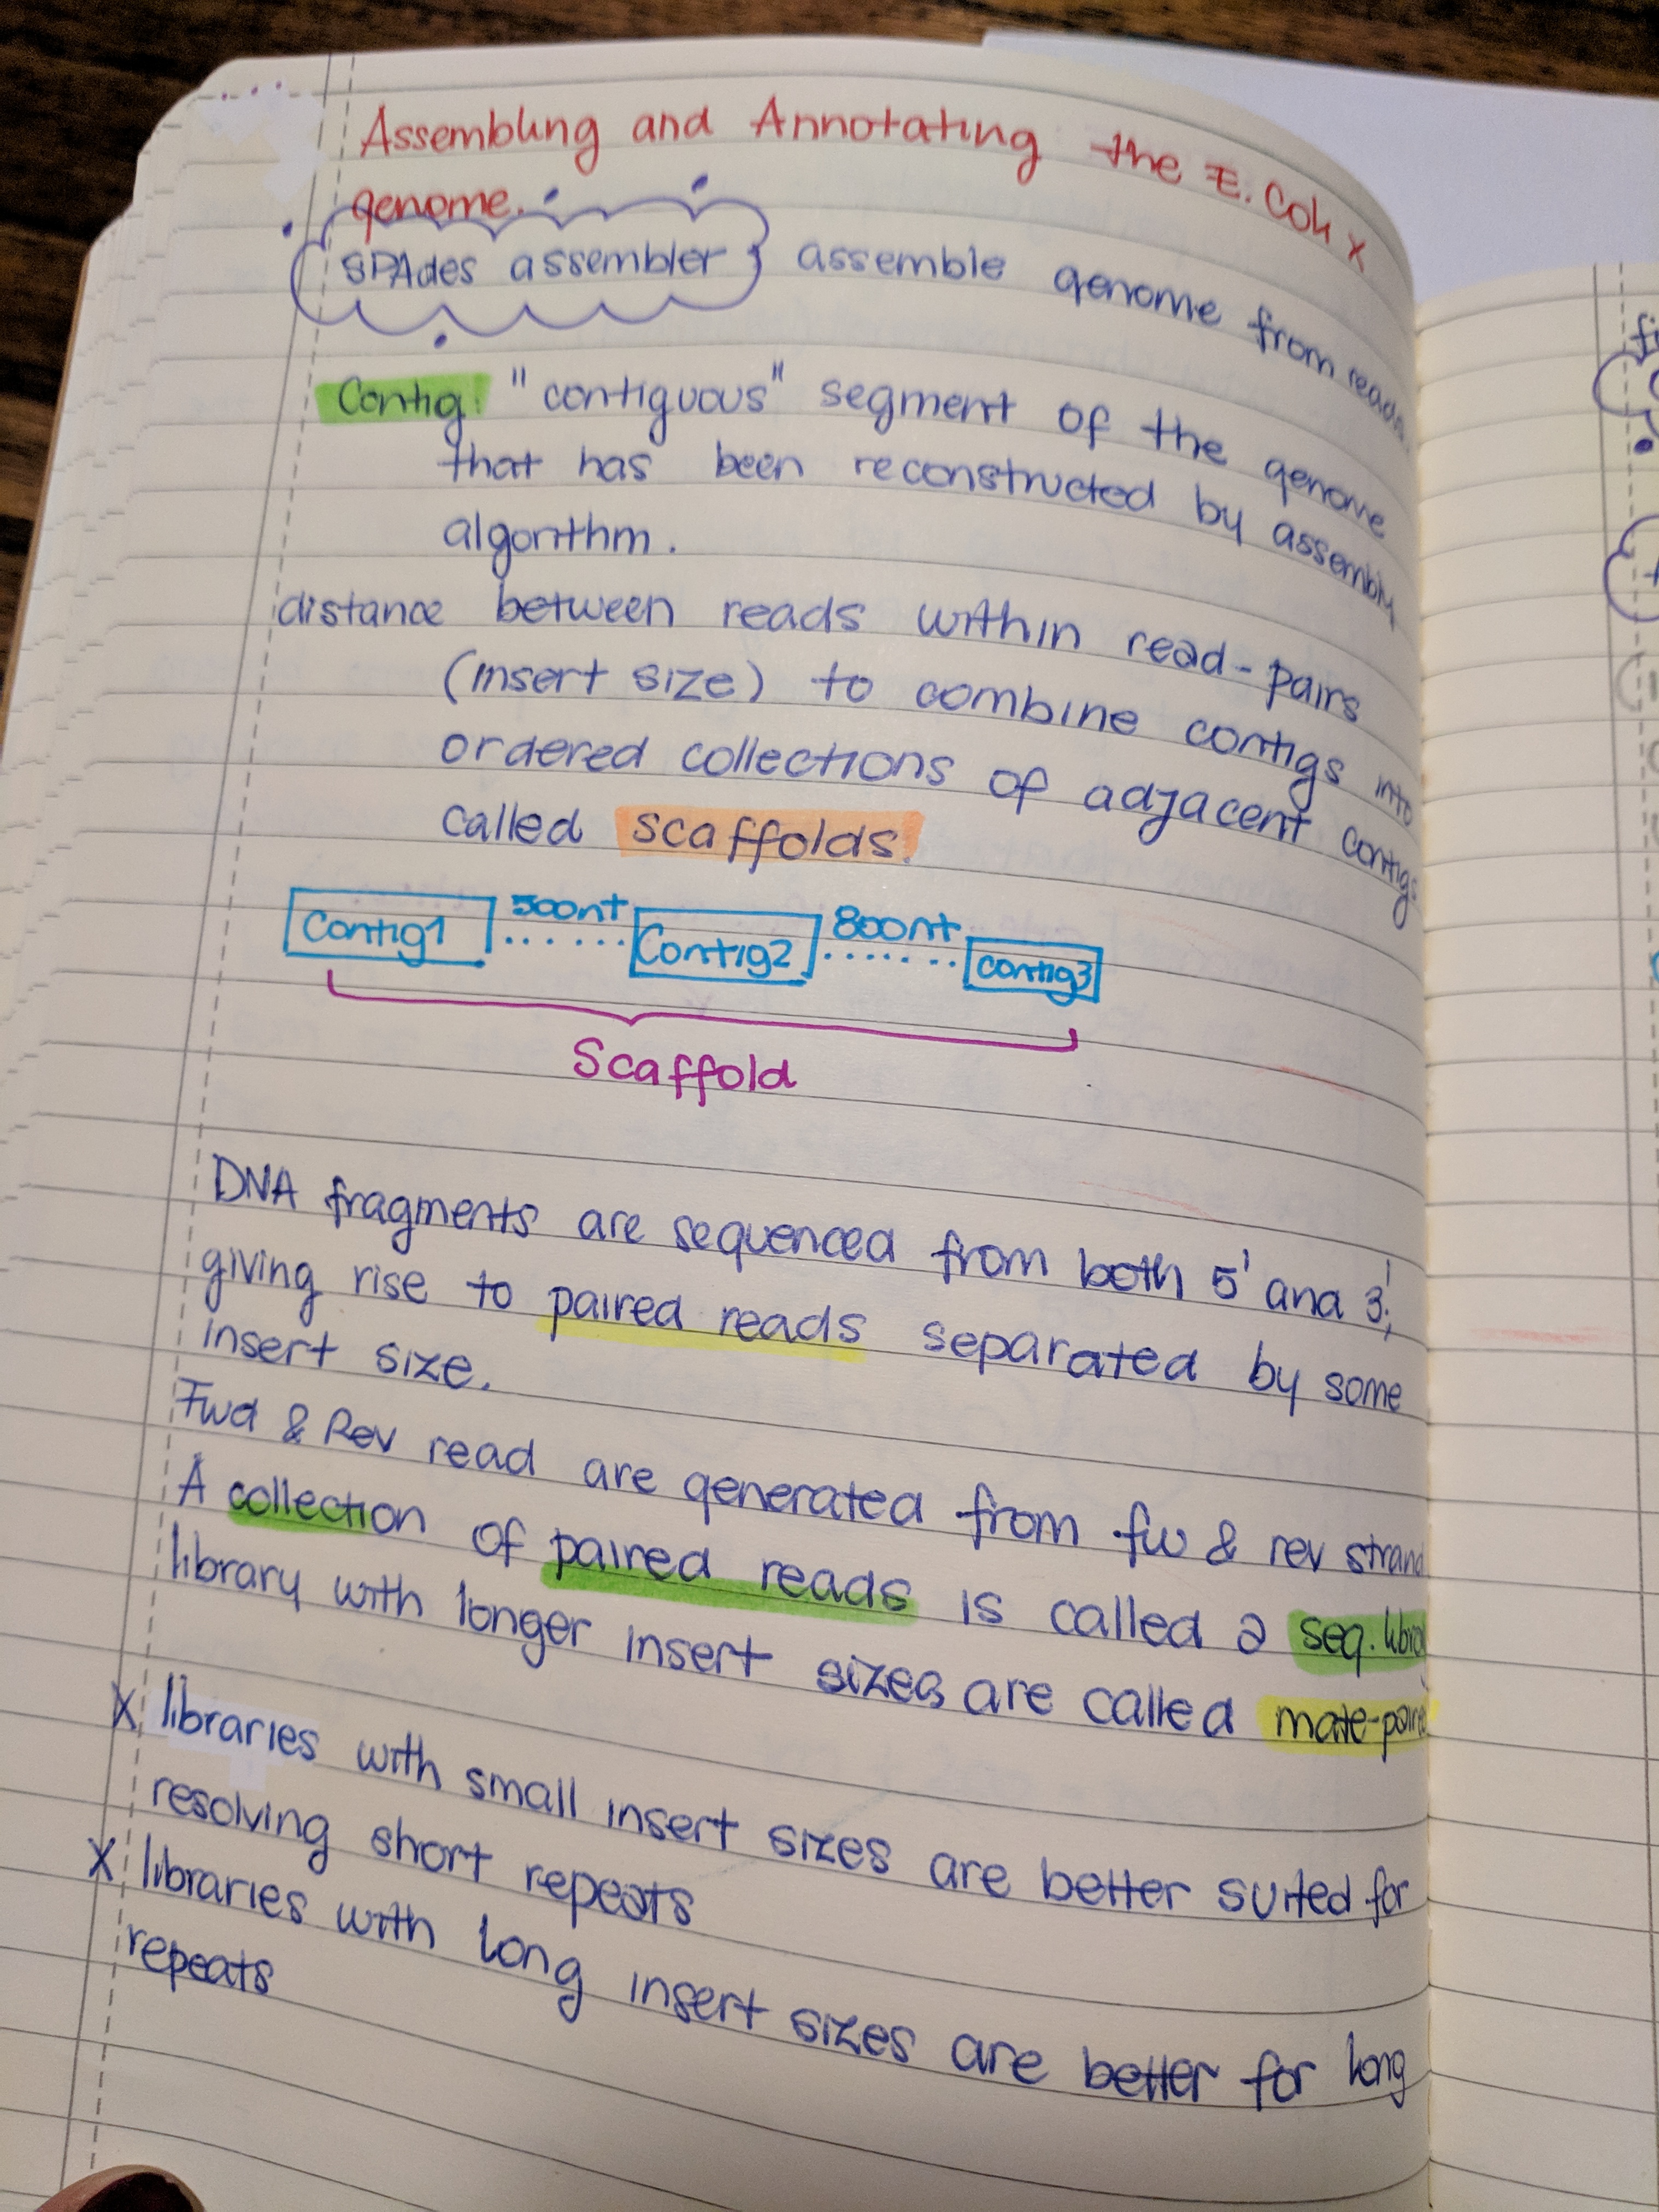 Assembling and Annotating the E. Coli X
genome.
SPAdes assembler } assemble genome from reads.
Contig: "contiguous" segment of the genome
that has been reconstructed by assembly
algorithm.
distance between reads within read-pairs
(insert size) to combine contigs into
ordered collections of adjacent contigs
called scaffolds.
Contig1 500nt Contig2 800nt contig3
Scaffold
DNA fragments are sequenced from both 5' and 3',
giving rise to paired reads separated by some
insert size.
Fwd & Rev read are generated from fw & rev strand
A collection of paired reads is called a seq.
library with longer insert sizes are called mate-paired
X libraries with small insert sizes are better suited for
resolving short repeats
X libraries with long insert sizes are better for long
repeats